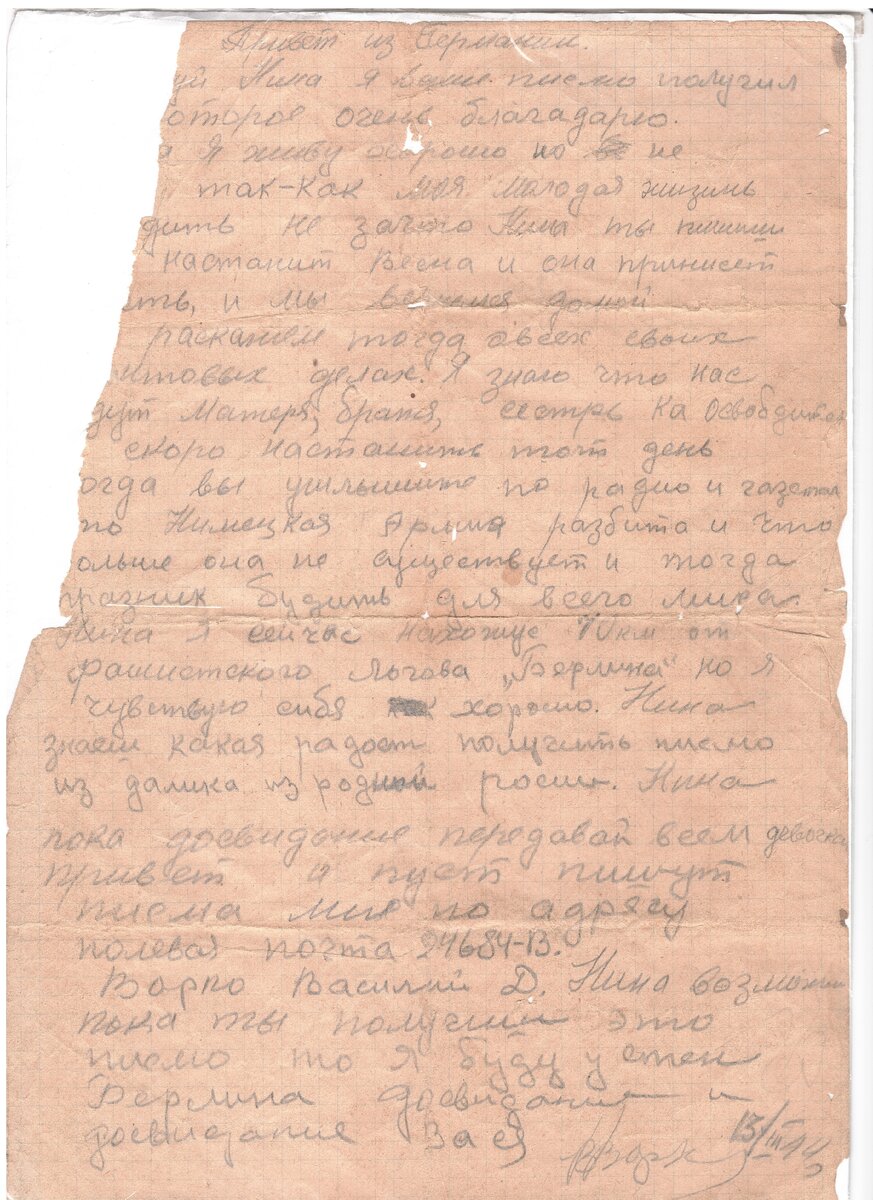 Привет из Германии.
ой Нина я ваше писмо получил
оторое очень благадарю.
а Я живу хорошо но не
так-как моя молодая жизинь
дить не зачого Нина ты пишиш
настанит Весна и она принисет
ть, и мы вернемся домой
раскажем тогда овсех своих
итовых делах. Я знаю что нас
дут Матеря, братя, сестры
скоро настанить тот день
огда вы услышите по радио и газетам
то Нимецкая Армия разбита и что
ольше она не существует и тогда
празник будить для всего мира.
Нина я сейчас нахожус 70 км от
фашистского льгова „Берлина" но я
чувствую сибя хорошо. Нина
знаеш какая радост получить писмо
из далика из родной росии. Нина
пока досвидание передавай всем девочка
привет и пуст пишут
писма мне по адрясу
полевая почта 24684-В.
Ворко Василий Д. Нина возможни
пока ты получиш это
писмо то я буду у стен
Берлина досвидание и
досвидание Вася
13/III